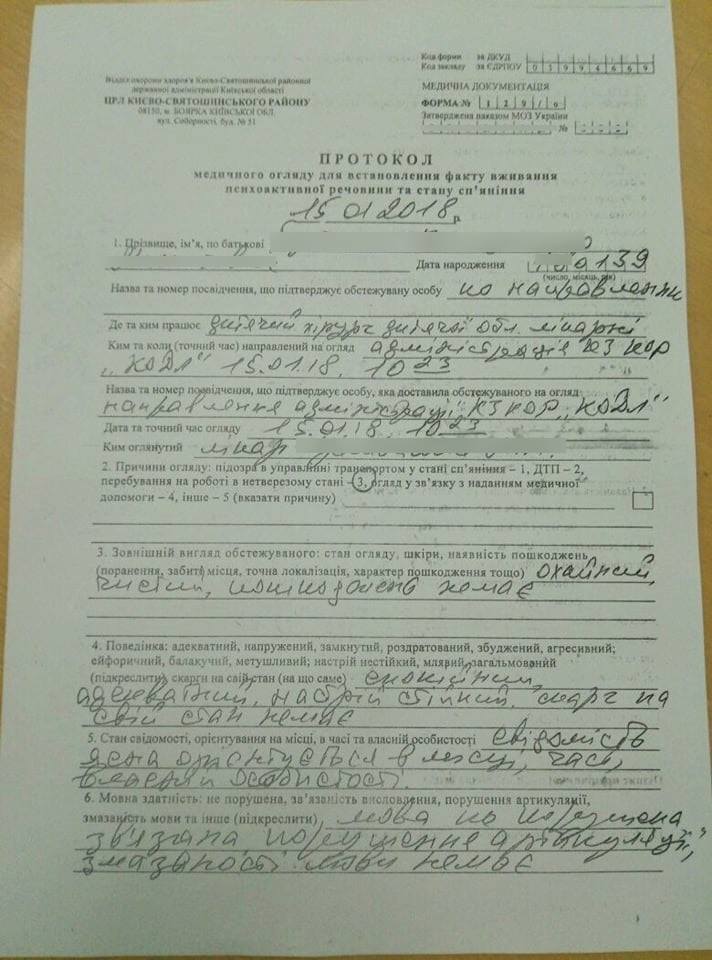 Код форми за ДКУД
Код закладу за ЄДРПОУ 03994669
Відділ охорони здоров'я Києво-Святошинської районної
державної адміністрації Київської області
ЦРЛ КИЄВО-СВЯТОШИНСЬКОГО РАЙОНУ
08150, м. БОЯРКА КИЇВСЬКОЇ ОБЛ.
вул. Соборності, буд. № 51
МЕДИЧНА ДОКУМЕНТАЦІЯ
ФОРМА № 129/о
Затверджена наказом МОЗ України
№
ПРОТОКОЛ
медичного огляду для встановлення факту вживання
психоактивної речовини та стану сп'яніння
15 01 2018 р.
1. Прізвище, ім'я, по батькові
Дата народження 139
(число, місяць, рік)
Назва та номер посвідчення, що підтверджує обстежувану особу по направленню
Де та ким працює дитячий хірург дитячої обл. лікарні
Ким та коли (точний час) направлений на огляд адміністрація КЗ КОР
"КОДЛ" 15.01.18. 10 23
Назва та номер посвідчення, що підтверджує особу, яка доставила обстежуваного на огляд
направлення адміністрації "КЗ КОР "КОДЛ"
Дата та точний час огляду 15.01.18. 10 23
Ким оглянутий лікар
2. Причини огляду: підозра в управлінні транспортом у стані сп'яніння – 1, ДТП – 2,
перебування на роботі в нетверезому стані – 3, огляд у зв'язку з наданням медичної
допомоги – 4, інше – 5 (вказати причину)
3. Зовнішній вигляд обстежуваного: стан огляду, шкіри, наявність пошкоджень
(поранення, забиті місця, точна локалізація, характер пошкодження тощо) охайний,
чистий, пошкоджень немає
4. Поведінка: адекватний, напружений, замкнутий, роздратований, збуджений, агресивний;
ейфоричний, балакучий, метушливий; настрій нестійкий, млявий, загальмований
(підкреслити), скарги на свій стан (на що саме) спокійний,
адекватний, настрій стійкий. скарг на
свій стан немає
5. Стан свідомості, орієнтування на місці, в часі та власній особистості свідомість
ясна орієнтується в місці, часі,
власній особистості.
6. Мовна здатність: не порушена, зв'язаність висловлення, порушення артикуляції,
змазаність мови та інше (підкреслити) мова не порушена
зв'язана порушення артикуляції,
змазаності мови немає